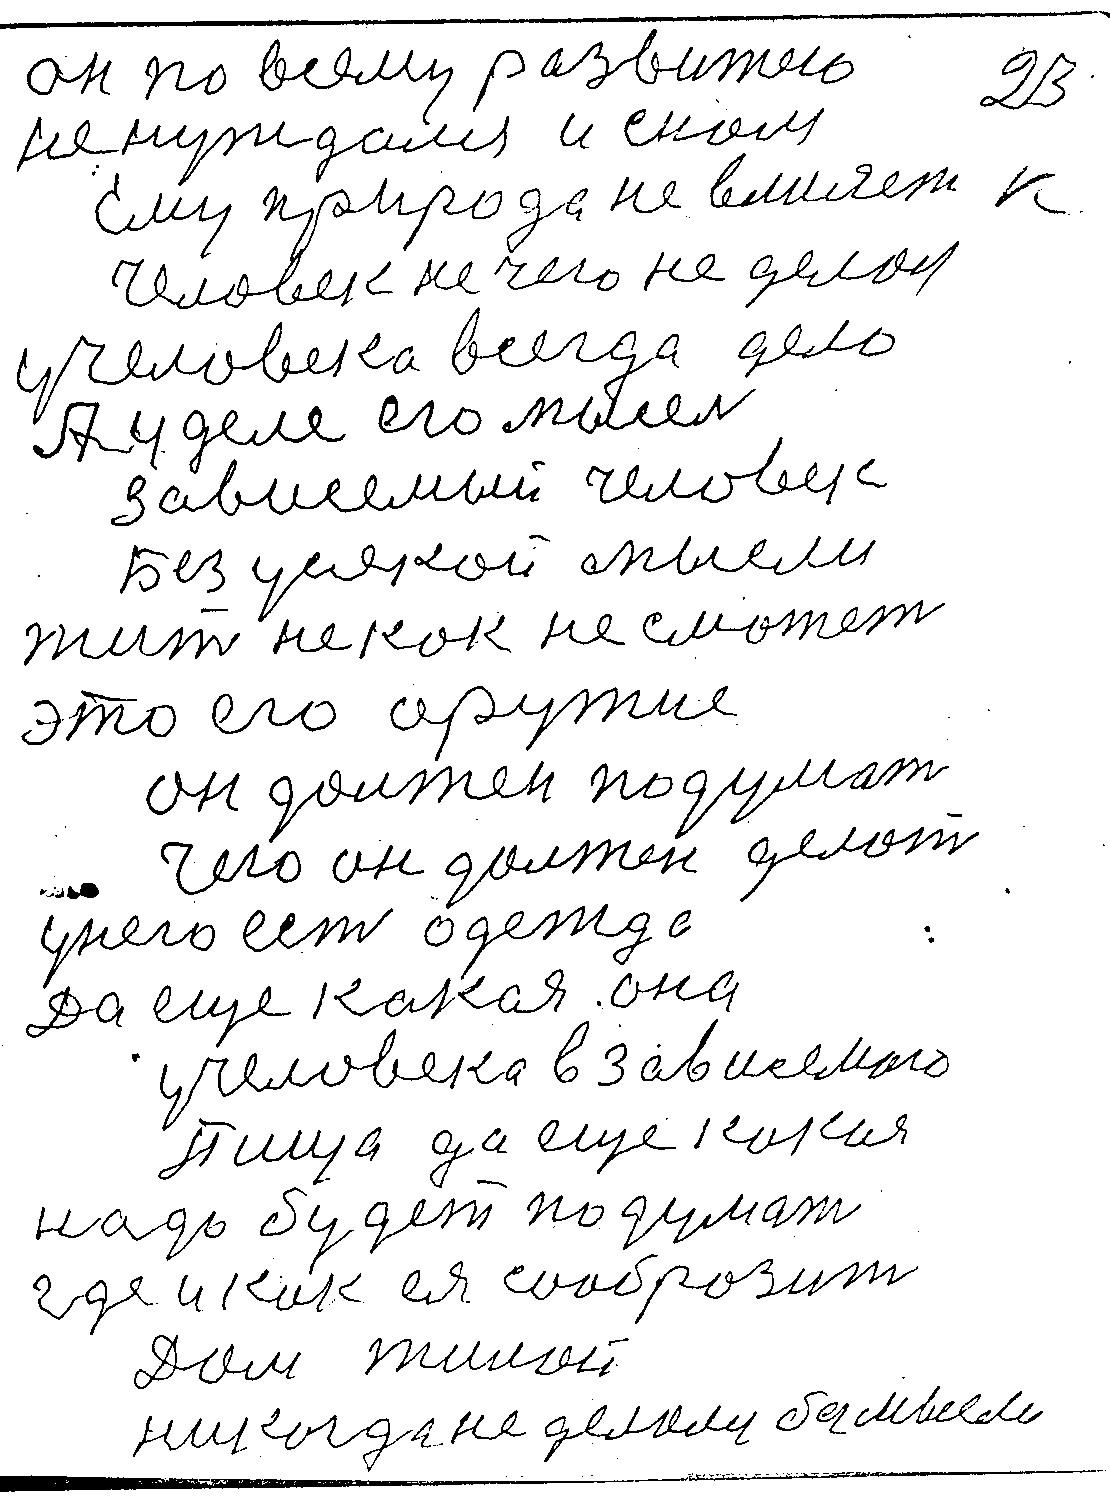 он по всему развитею 23
не нуждался и сном
Ему природа не влияет к
человек не чего не делол
у человека всегда дело
А у деле его мысел
зависемый человек
Без усякой мысли
жит не как не сможет
это его оружие
он должен подумат
чего он должен делот
у него ест одежда
Да еще какая она
у человека в зависемого
Пища да еще кокая
надо будет подумат
где и как ея соображит
Дом жилой
никогда не делолу